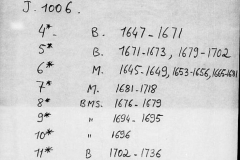 J. 1006.
4* B. 1647-1671
5* B. 1671-1673, 1679-1702
6* M. 1645-1649, 1653-1656,
7* M. 1681-1718
8* BMS. 1676-1679
9* " 1694-1695
10* " 1696
11* B 1702-1736